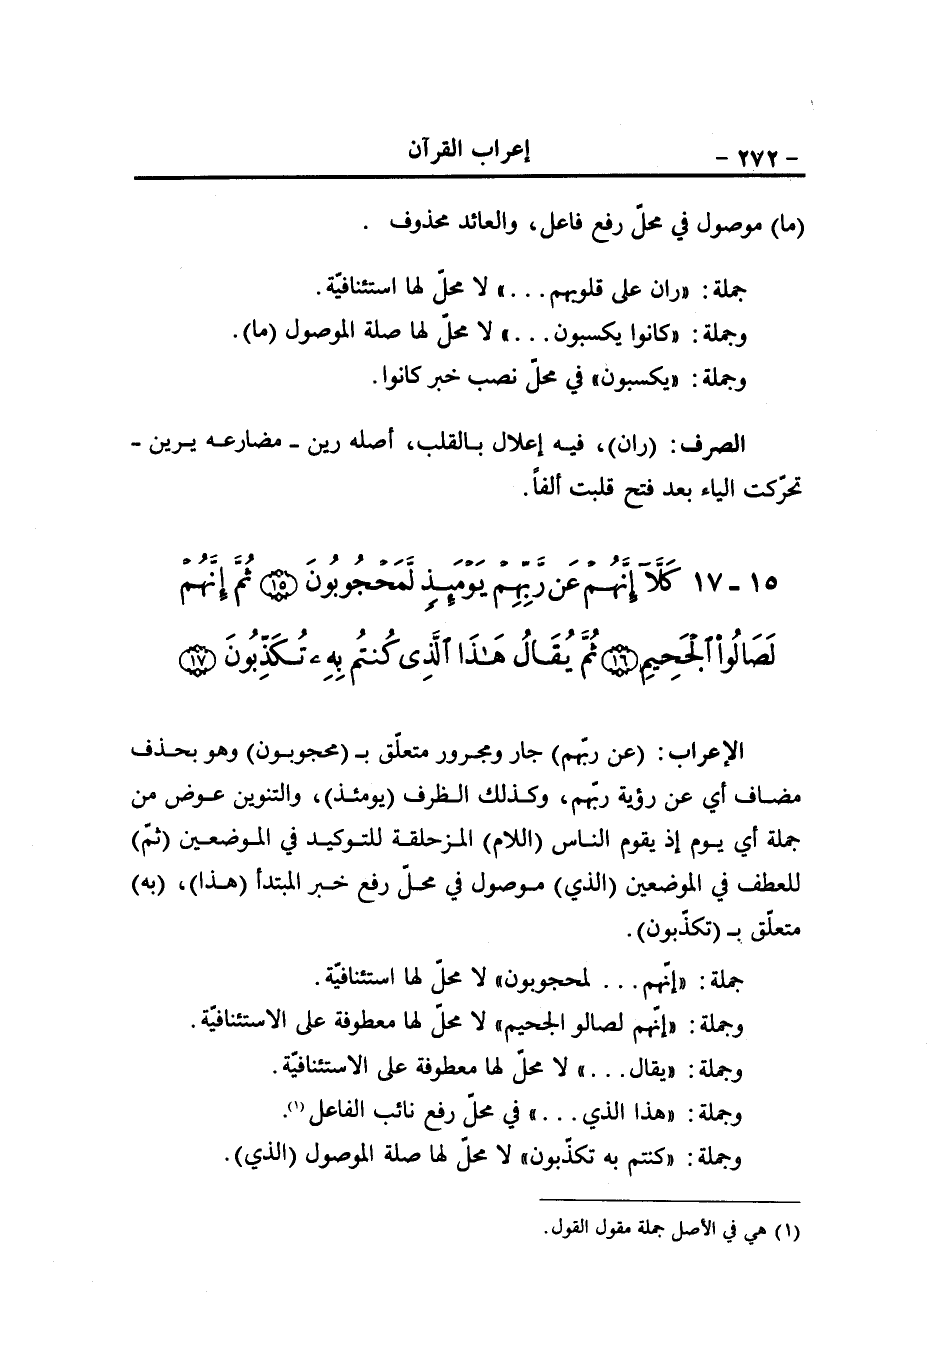 - ٢٧٢ - إعراب القرآن
(ما) موصول في محلّ رفع فاعل، والعائد محذوف .
جملة: «ران على قلوبهم...» لا محلّ لها استئنافيّة.
وجملة: «كانوا يكسبون...» لا محلّ لها صلة الموصول (ما).
وجملة: «يكسبون» في محلّ نصب خبر كانوا.
الصرف: (ران)، فيه إعلال بالقلب، أصله رين - مضارعه يرين -
تحرّكت الياء بعد فتح قلبت ألفاً.
١٥ - ١٧ كَلَّآ إِنَّهُمْ عَن رَّبِّهِمْ يَوْمَئِذٍ لَّمَحْجُوبُونَ ﴿١٥﴾ ثُمَّ إِنَّهُمْ
لَصَالُوا۟ ٱلْجَحِيمِ ﴿١٦﴾ ثُمَّ يُقَالُ هَـٰذَا ٱلَّذِى كُنتُم بِهِۦ تُكَذِّبُونَ ﴿١٧﴾
الإعراب: (عن ربّهم) جار ومجرور متعلّق بـ (محجوبون) وهو بحذف
مضاف أي عن رؤية ربّهم، وكذلك الظرف (يومئذ)، والتنوين عوض من
جملة أي يوم إذ يقوم الناس (اللام) المزحلقة للتوكيد في الموضعين (ثمّ)
للعطف في الموضعين (الذي) موصول في محلّ رفع خبر المبتدأ (هذا)، (به)
متعلّق بـ (تكذّبون).
جملة: «إنّهم... لمحجوبون» لا محلّ لها استئنافيّة.
وجملة: «إنّهم لصالو الجحيم» لا محلّ لها معطوفة على الاستئنافيّة.
وجملة: «يقال...» لا محلّ لها معطوفة على الاستئنافيّة.
وجملة: «هذا الذي...» في محلّ رفع نائب الفاعل(١).
وجملة: «كنتم به تكذّبون» لا محلّ لها صلة الموصول (الذي).
(١) هي في الأصل جملة مقول القول.